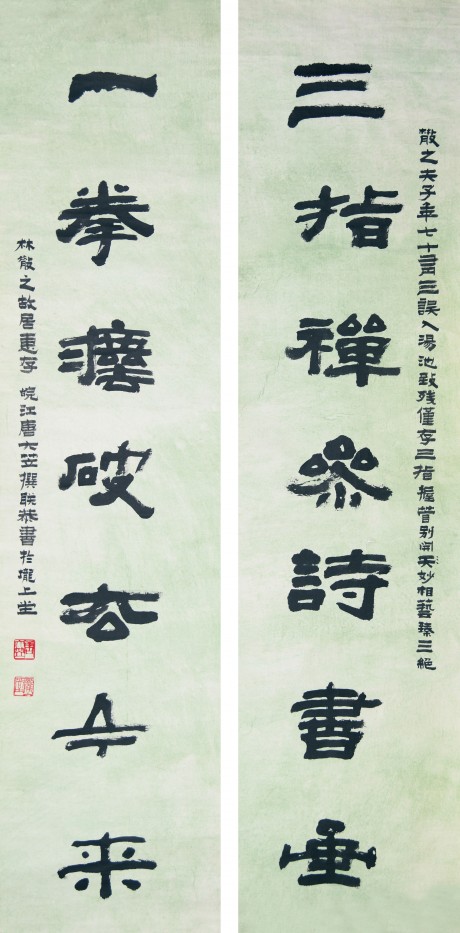 散之夫子年七十有三誤入湯池致残僅存三指握管别開天妙相藝臻三絕
三指禪参詩書
一拳破今来
林散之故居惠存 皖江唐大笠撰联恭書於壠上